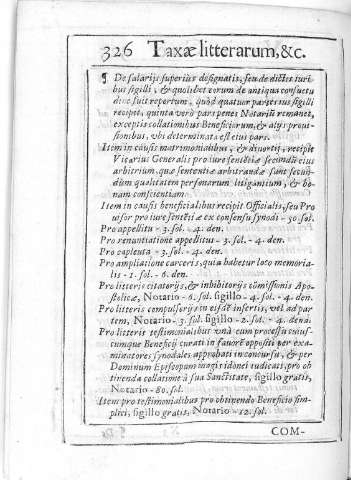 326 Taxæ litterarum, &c.
¶ De salarijs superius designatis, seu de dictis iuri
bus sigilli, & quolibet eorum de antiqua consuetu
dine fuit repertum, quòd quatuor partes ius sigilli
recipit, quinta verò pars penes Notariũ remanet,
exceptis collationibus Beneficiorum, & alijs proui-
sionibus, vbi determinata est eius pars.
Item in causis matrimonialibus, & diuortij, recipit
Vicarius Generalis pro iure sentẽtiæ secundũ eius
arbitrium, quæ sententiæ arbitrandæ sunt secun-
dùm qualitatem personarum litigantium, & bo-
nam conscientiam.
Item in causis beneficialibus recipit Officialis, seu Pro
uisor pro iure sentẽtiæ ex consensu synodi - 50. sol.
Pro appellitu - 3. sol. - 4. den.
Pro renuntiatione appellitus - 3. sol. - 4. den.
Pro capleuta - 3. sol. - 4. den.
Pro ampliatione carceris, quia habetur loco memoria-
lis - 1. sol. - 6. den.
Pro litteris citatorijs, & inhibitorijs cõmissionis Apo-
stolicæ, Notario - 6. sol. sigillo - 4. sol. - 4. den.
Pro litteris compulsorijs in eisdẽ insertis, vel ad par
tem, Notario - 3. sol. sigillo - 2. sol. - 4. den.
Pro litteris testimonialibus vnà cum processu cuius-
cumque Beneficij curati in fauorẽ oppositi per exa-
minatores synodales approbati in concursu, & per
Dominum Episcopum magis idonei iudicati, pro ob
tinenda collatione à sua Sanctitate, sigillo gratis,
Notario - 80. sol.
Item pro testimonialibus pro obtinendo Beneficio sim-
plici, sigillo gratis, Notario - 12. sol.
COM-